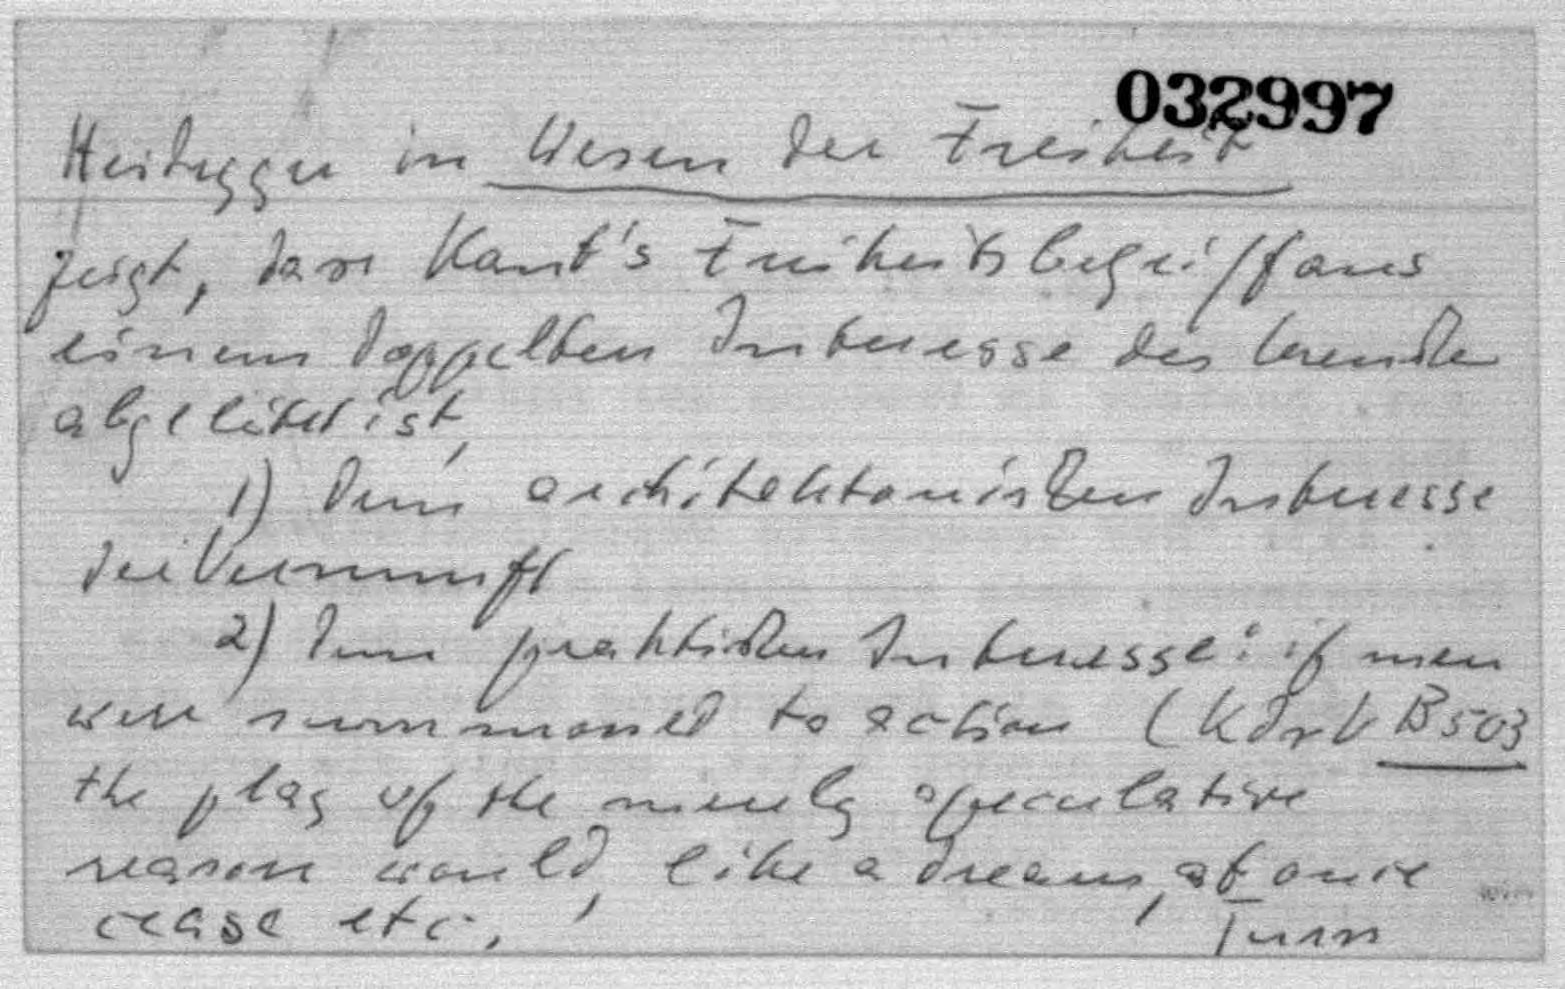 032997
Heidegger in Wesen der Freiheit
zeigt, dass Kant's Freiheitsbegriff aus
einem doppelten Interesse des
abgeleitet ist,
1) dem architektonischen Interesse
der Vernunft
2) dem praktischen Interesse: if men
were summoned to action (KdrV B503
the play of the merely speculative
reason would, like a dream, at once
cease etc.
Turn